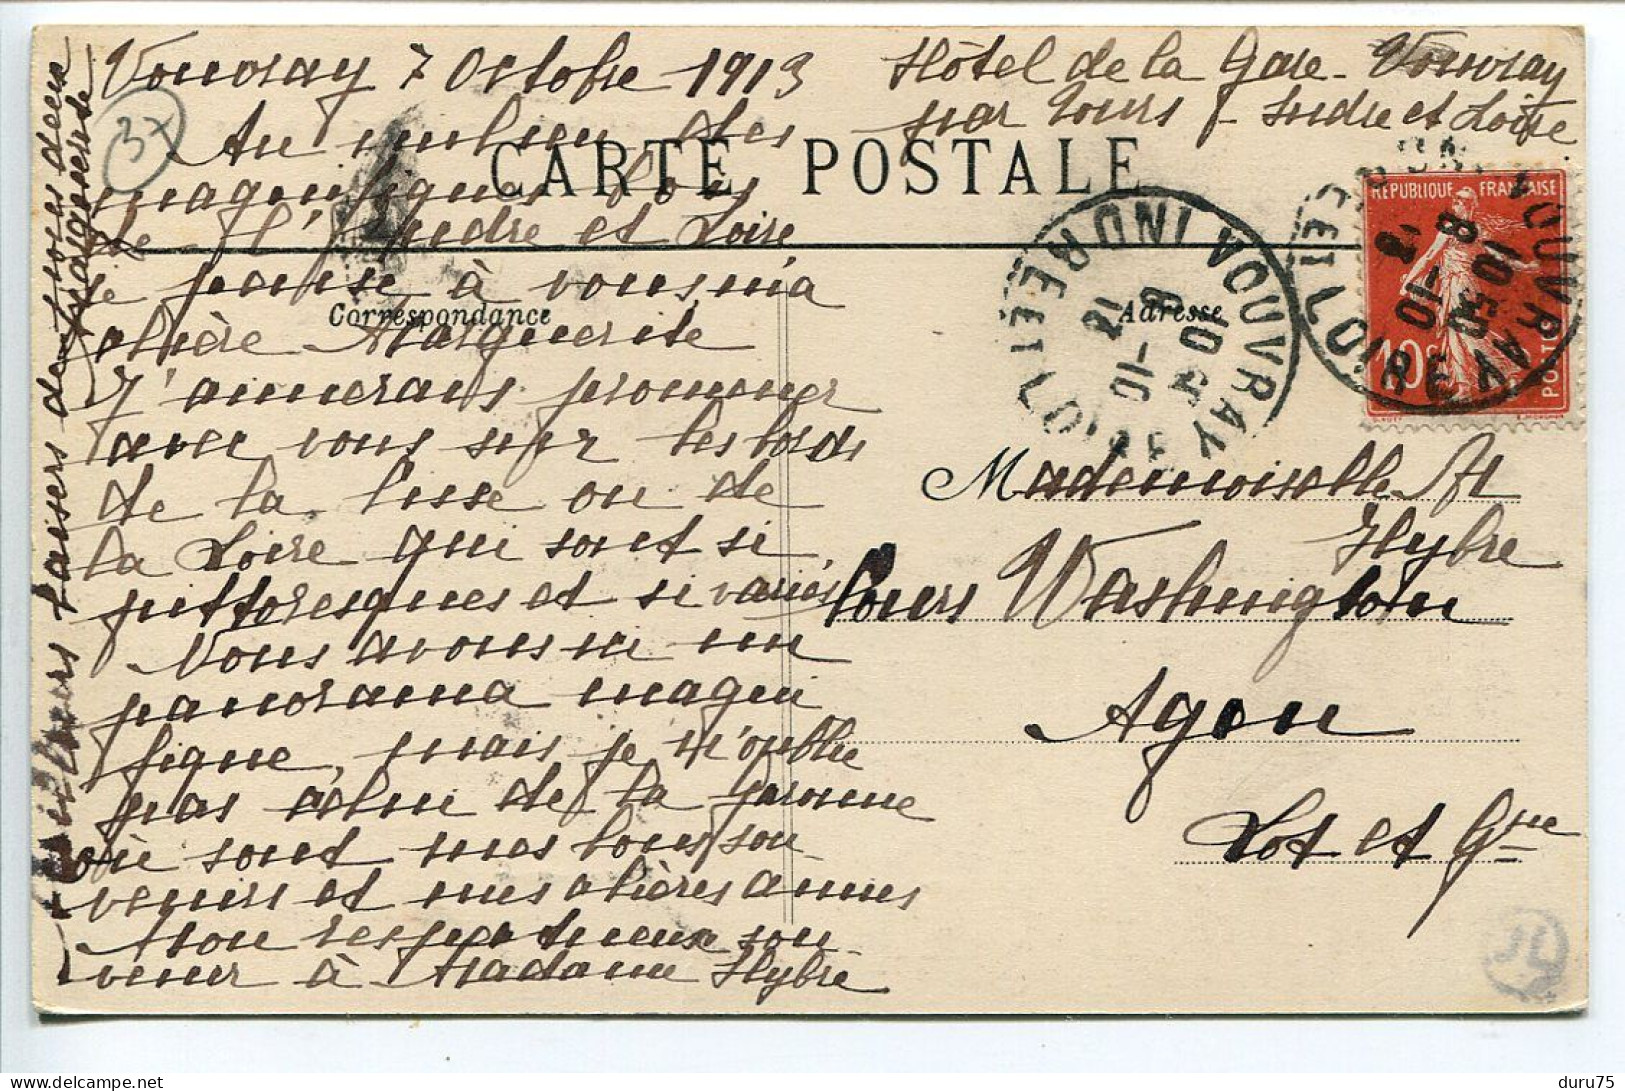 Vouvray 7 Octobre 1913
Au milieu des
magnifiques bois
de l'Indre et Loire
je pense à vous ma
chère Marguerite
J'aimerais promener
avec vous sur les bords
de la Cisse ou de
la Loire qui sont si
pittoresques et si variés
Nous avons ici un
panorama magni
fique, mais je n'oublie
pas celui de la Garonne
où sont mes bons sou
venirs et mes chères amies
Mon respectueux sou
venir à Madame Hybre
baisers de
Marguerite
37
Hôtel de la Gare - Vouvray
par Tours - Indre et Loire
CARTE POSTALE
Correspondance
Adresse
VOUVRAY
INDRE ET LOIRE
10 50
8 -10
RÉPUBLIQUE FRANÇAISE
10c
POSTES
VOUVRAY
10 50
8 -10
Mademoiselle M
Hybre
Cours Washington
Agen
Lot et Gne
duru75